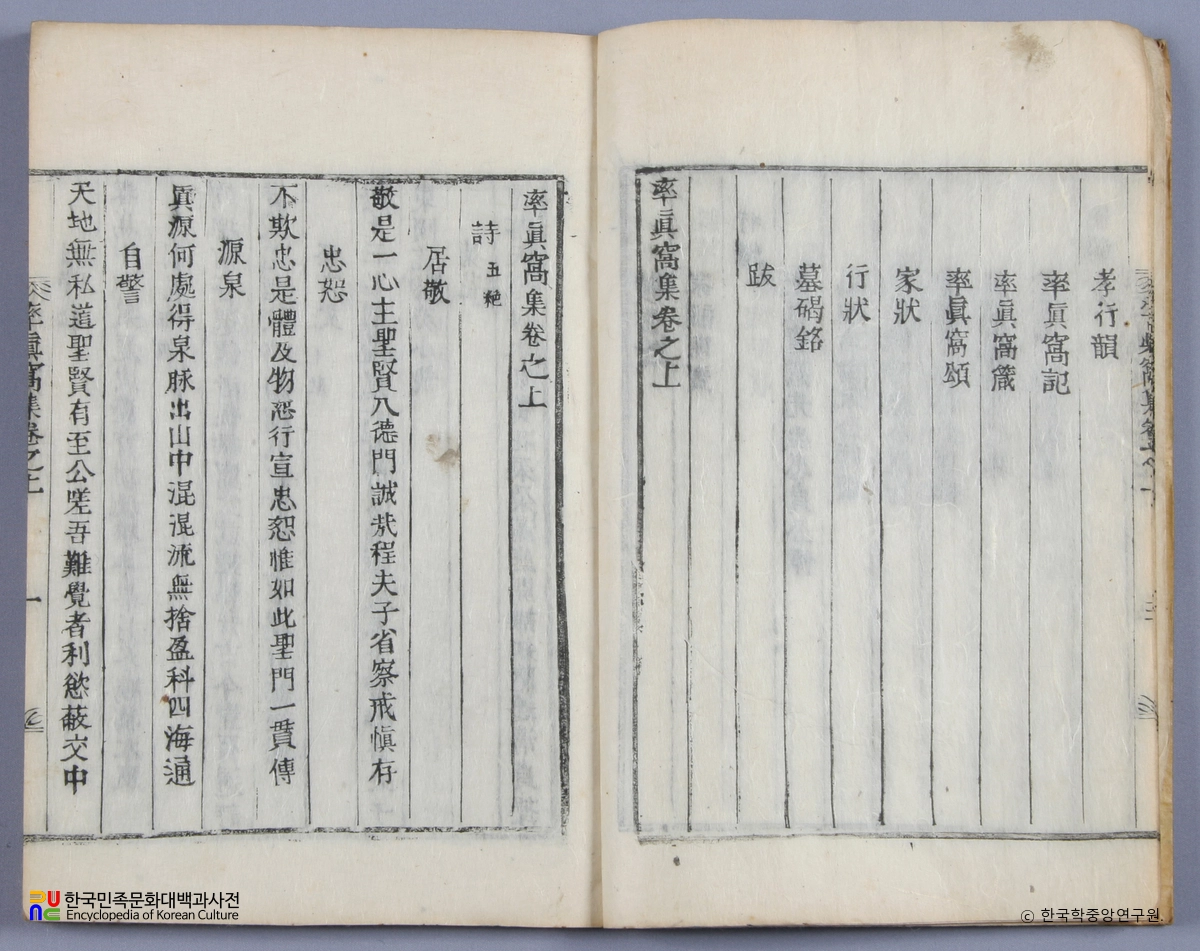 孝行韻
率眞窩記
率眞窩箴
率眞窩頌
家狀
行狀
墓碣銘
跋
率眞窩集卷之上
率眞窩集卷之上
詩 五絶
居敬
敬是一心主聖賢入德門誠哉程夫子省察戒愼存
忠恕
不欺忠是體及物恕行宣忠恕惟如此聖門一貫傳
源泉
眞源何處得泉脉出山中混混流無捨盈科四海通
自警
天地無私道聖賢有至公嗟吾難覺者利慾蔽交中
率眞窩集卷之上
一
한국민족문화대백과사전
Encyclopedia of Korean Culture
© 한국학중앙연구원